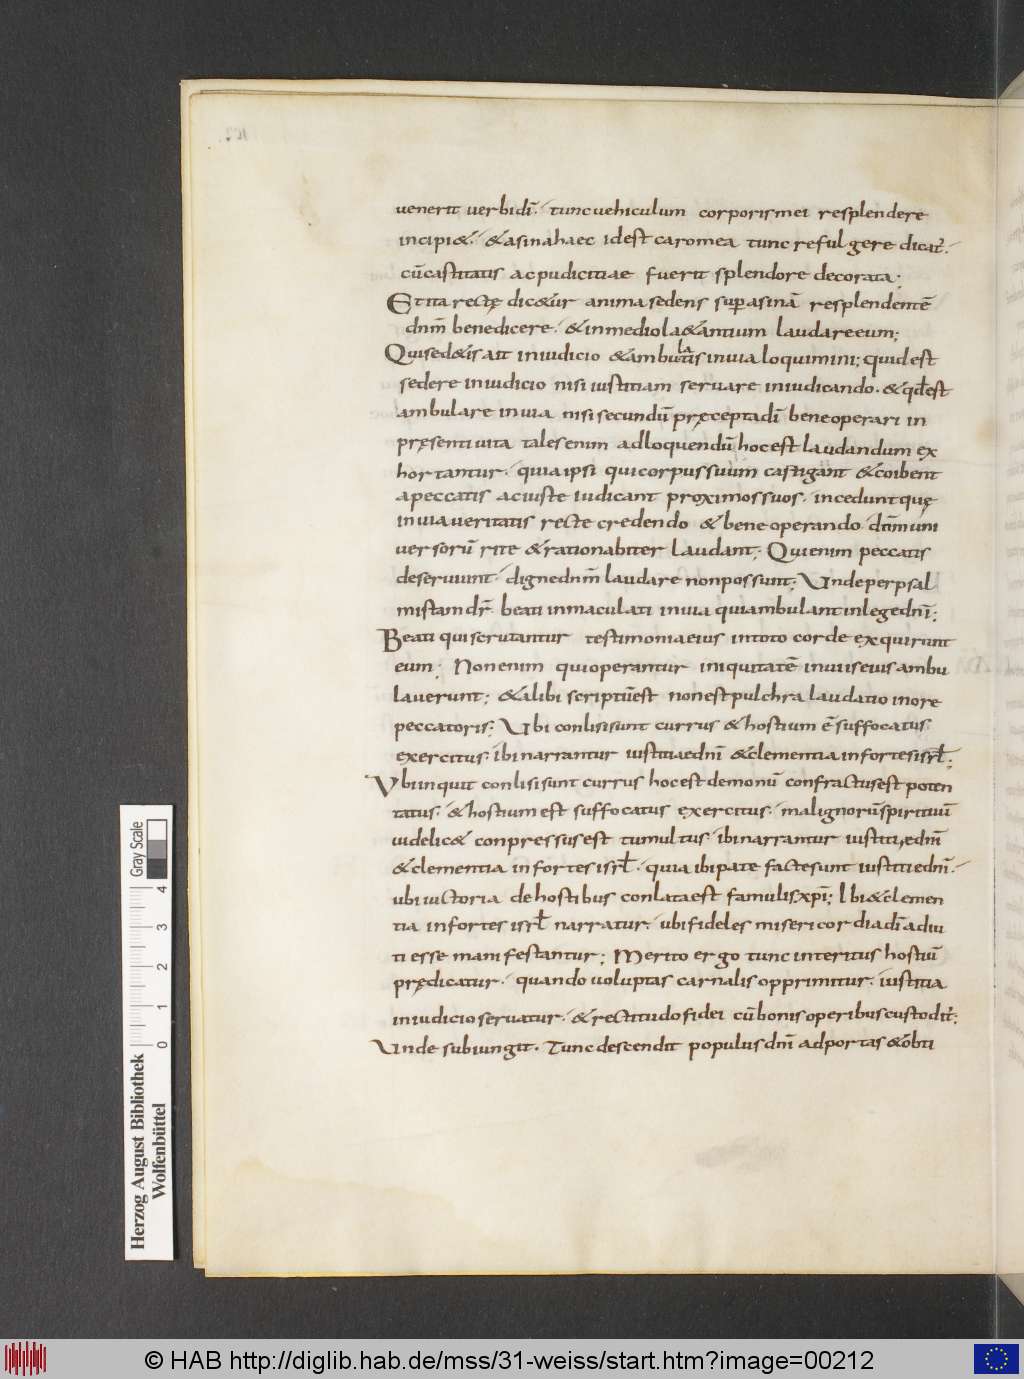 uenerit uerbi dī· tunc uehiculum corporis mei resplendere
incipi&· & asina haec idest caro mea tunc refulgere dicat᷑·
cū castitatis ac pudicitiae fuerit splendore decorata;
Et ita rectę dic&ur anima sedens sup asinā resplendentē
dnm̄ benedicere· & in medio la&antium laudare eum;
Qui sed&is ait in iudicio & ambulatis in uia loquimini; quid est
sedere in iudicio nisi iustitiam seruare in iudicando· & qđ est
ambulare in uia nisi secundū pręcepta dī bene operari in
pręsenti uita tales enim ad loquendū hoc est laudandum ex
hortantur· quia ipsi qui corpus suum castigant & coibent
a peccatis ac iuste iudicant proximos suos· incedunt quę
in uia ueritatis recte credendo & bene operando dn̄m uni
uersorū rite & rationabiter laudant; Qui enim peccatis
deseruiunt· digne dnm̄ laudare non possunt; Unde per psal
mistam dr̄· beati inmaculati in uia qui ambulant in lege dnī;
Beati qui scrutantur testimonia eius in toto corde exquirunt
eum; Non enim qui operantur iniquitatē in uiis eius ambu
lauerunt; & alibi scriptū est non est pulchra laudatio in ore
peccatoris; Ubi conlisi sunt currus & hostium ē suffocatus
exercitus· ibi narrantur iustitiae dnī & clementia in fortes isrł;
Ubi inquit conlisi sunt currus hoc est demonū confractus est poten
tatus· & hostium est suffocatus exercitus· malignorū spirituū
uidelic& conpressus est tumultus ibi narrantur iustitię dnī
& clementia in fortes isrł· quia ibi pate factę sunt iustitię dnī·
ubi uictoria de hostibus conlata est famulis xpī; Ibi & clemen
tia in fortes isrł narratur· ubi fideles misericordia dī adiu
ti esse manifestantur; Merito ergo tunc interitus hostiū
prędicatur· quando uoluptas carnalis opprimitur· iustitia
in iudicio seruatur· & rectitudo fidei cū bonis operibus custodit᷑;
Unde subiungit· Tunc descendit populus dnī ad portas & obti
Herzog August Bibliothek
Wolfenbüttel
Gray Scale
0 1 2 3 4
© HAB http://diglib.hab.de/mss/31-weiss/start.htm?image=00212